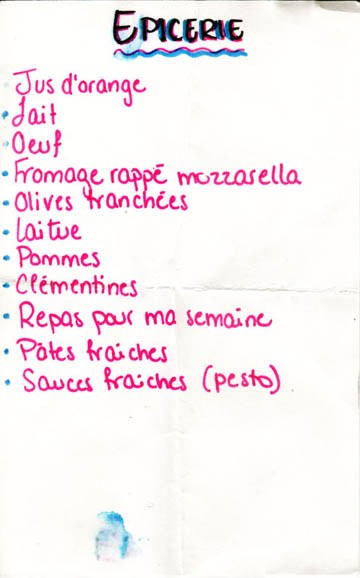 EPICERIE
Jus d'orange
• Lait
• Oeuf
• Fromage rappé mozzarella
• Olives tranchées
• Laitue
• Pommes
• Clémentines
• Repas pour ma semaine
• Pâtes fraiches
• Sauces fraiches (pesto)